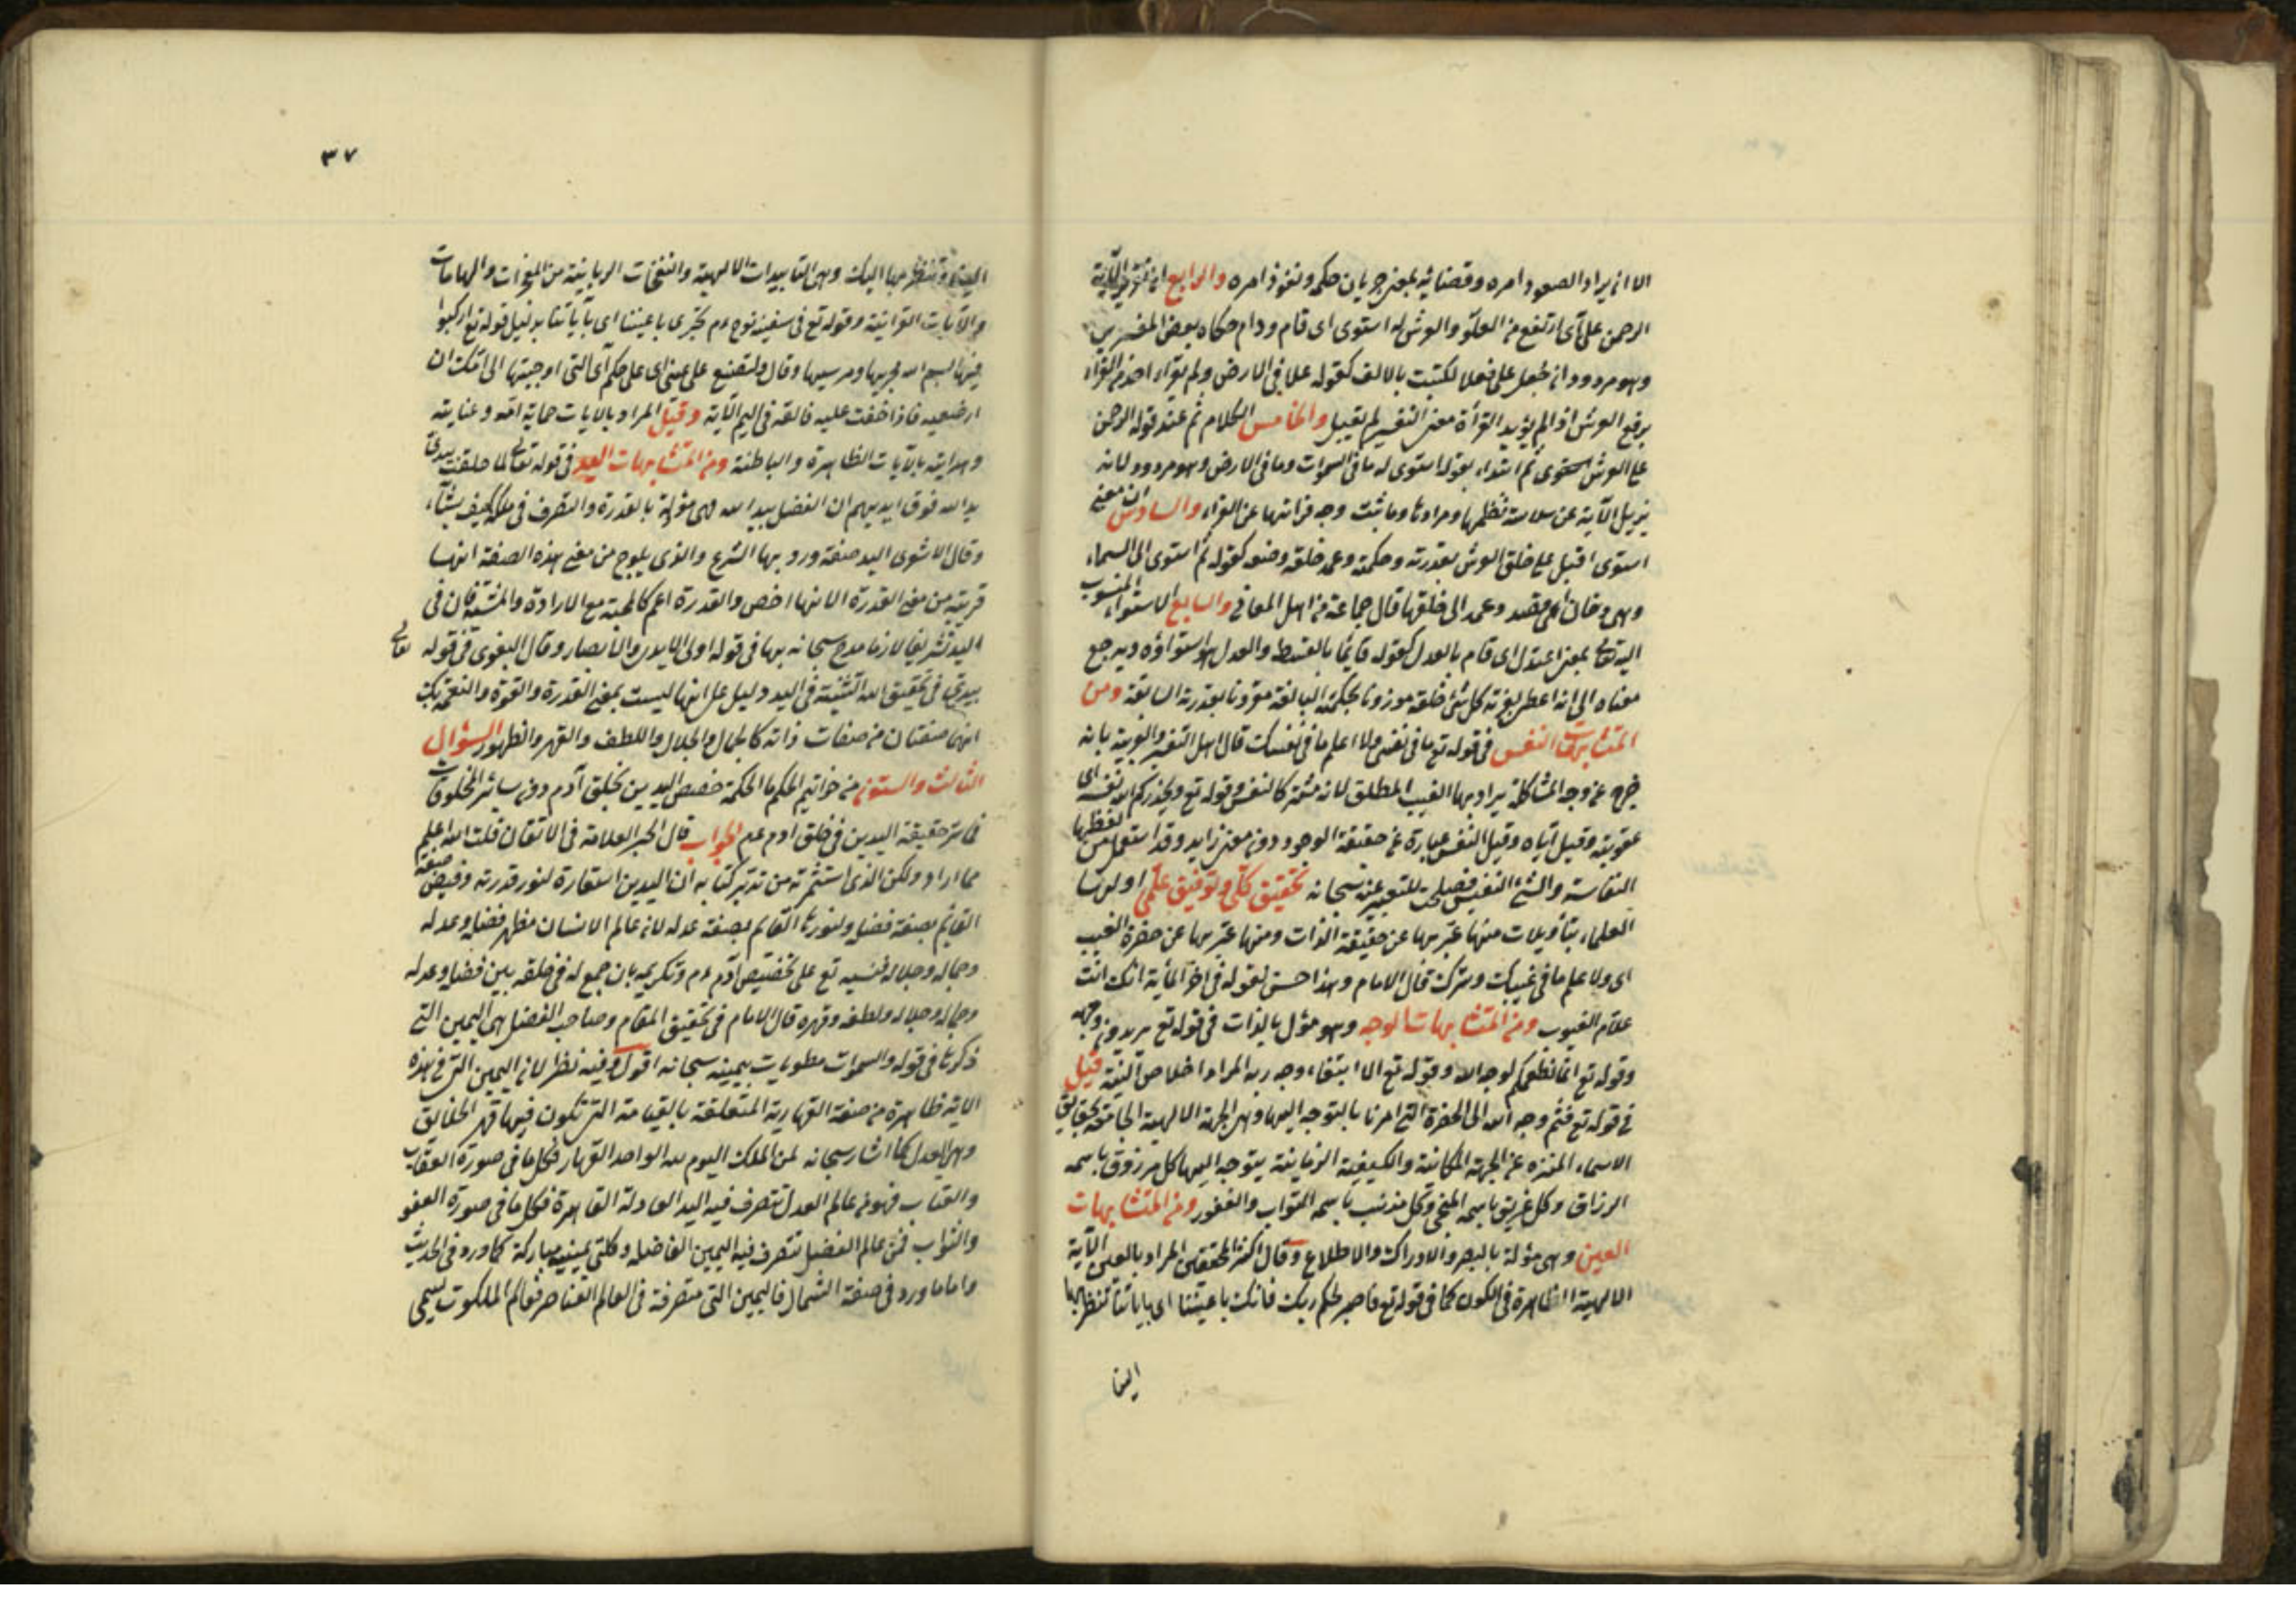 الا ان يراد الصعود امره وقضائه بمعنى جريان حكمه ونفوذ امره والرابع ان تقدير الآية
الرحمن على آى ارتفع من العلو والعرش له استوى اى قام ودام حكاه بعض المفسرين
وهو مردود انه جعل على فعلا لكتبت بالالف كقوله علا فى الارض ولم يقرء احد من القراء
برفع العرش اذ لم يؤيد القرأة معنى التفسير لم يقبل والخامس الكلام تم عند قوله الرحمن
على العرش استوى ثم ابتداء بقوله استوى له ما فى السموات وما فى الارض وهو مردود لانه
يزيل الآية عن سلاسة نظمها ومرادها وما ثبت وجه قرائتها عن القراء والسادس ان معنى
استوى اقبل على خلق العرش بقدرته وحكمته وعمد خلقه وصنعه كقوله ثم استوى الى السماء
وهى دخان اى قصد وعمد الى خلقها قال جماعة من اهل المعانى والسابع الاستواء المنسوب
اليه تعالى بمعنى اعتدل اى قام بالعدل كقوله قايما بالقسط والعدل هو استواؤه ويرجع
معناه الى انه اعطى بعزته كل شئ خلقه موزونا بحكمته البالغة مقرونا بقدرته السابقة ومن
المتشابهات النفس فى قوله تع ما فى نفسى ولا اعلم ما فى نفسك قال اهل التفسير والعربية بانه
خرج عن وجه المشاكلة يراد بها الغيب المطلق لانه مستتر كالنفس وقوله تع ويحذركم الله نفسه اى
عقوبته وقيل اياه وقيل النفس عبارة عن حقيقة الوجود دون معنى زايد وقد استعمل من لفظها
النفاسة والشئ النفيس فصلحت للتعبير عنه سبحانه تحقيق كلى وتوفيق علمى اولوها
العلماء بتأويلات منها عبر بها عن حقيقة الذات ومنها عبر بها عن حضرة الغيب
اى ولا علم ما فى غيبك وسرك قال الامام وهذا حسن لقوله فى اخر الآية انك انت
علام الغيوب ومن المتشابهات الوجه وهو مؤل بالذات فى قوله تع يريدون وجهه
وقوله تع انما نطعمكم لوجه الله وقوله تع الا ابتغاء وجه ربه المراد اخلاص النية قيل
فى قوله تع فثم وجه الله الى الحضرة التى امرنا بالتوجه اليها وهى الجهة الالهية الجامعة بحقايق
الاسماء المنزه عن الجهة المكانية والكيفية الزمانية يتوجه اليها كل مرزوق باسمه
الرزاق وكل غريق باسمه المنجى وكل مذنب باسمه التواب والغفور ومن المتشابهات
العين وهى مؤلة بالبصر والادراك والاطلاع وقال اكثر المحققين المراد بالعين الآية
الالهية الظاهرة فى الكون كما فى قوله تع فاصبر لحكم ربك فانك باعيننا اى باياتنا تنظر بها
الينا
٣٧
الينا وتنظر بها اليك وهى التاييدات الالهية والنفخات الربانية من المعجزات والهامات
والآيات القرانية وقوله تع فى سفينة نوح ءم تجرى باعيننا اى بآياتنا بدليل قوله تع اركبوا
فيها بسم الله مجريها ومرسيها وقال ولتصنع على عينى اى على حكم آى التى اوحيتها الى امك ان
ارضعيه فاذا خفت عليه فالقيه فى اليم الآية وقيل المراد بالايات حماية الله وعنايته
وهدايته بالآيات الظاهرة والباطنة ومن المتشابهات اليد فى قوله تعالى لما خلقت بيدى
يد الله فوق ايديهم ان الفضل بيد الله فهى مؤلة بالقدرة والتصرف فى ملكه كيف يشاء
وقال الاشعرى اليد صفة ورد بها الشرع والذى يلوح من معنى هذه الصفة انها
قريبة من معنى القدرة الا انها اخص والقدرة اعم كالمحبة مع الارادة والمشية فان فى
اليد تشريفا لازما مدح سبحانه بها فى قوله اولى الايدى والابصار وقال البغوى فى قوله تعالى
بيدى فى تحقيق الله التثنية فى اليد دليل على انها ليست بمعنى القدرة والقوة والنعمة بل
انهما صفتان من صفات ذاته كالجمال والجلال واللطف والقهر والظهور السؤال
الثالث والستون من خواتيم الحكم ما الحكمة خصص اليدين بخلق آدم دون سائر المخلوقات
فما سر حقيقة اليدين فى خلق ادم عم الجواب قال الحبر العلامة فى الاتقان قلت الله اعلم
مما اراد ولكن الذى استثمرته من تدبر كتابه ان اليدين استعارة لنور قدرته وفيض صفة
القايم بصفة فضله ولنورها القايم بصفة عدله لانه عالم الانسان مظهر فضله وعدله
وجماله وجلاله فنبه تع على تخصيص آدم ءم وتكريمه بان جمع له فى خلقه بين فضله وعدله
وجماله وجلاله ولطفه وقهره قال الامام فى تحقيق المقام وصاحب الفضل هى اليمين التى
ذكرها فى قوله والسموات مطويات بيمينه سبحانه اقول وفيه نظر لانه اليمين التى فى هذه
الاية ظاهرة من صفة القهارية المتعلقة بالقيامة التى تكون فيها قهر الخلايق
وهى العدل كما اشار سبحانه لمن الملك اليوم لله الواحد القهار فكل ما فى صورة العقاب
والعتاب فهو من عالم العدل تتصرف فيه اليد العادلة القاهرة فكل ما فى صورة العفو
والثواب فمن عالم الفضل تتصرف فيه اليمين الفاضلة وكلتى يمينيه مباركة كما ورد فى الحديث
واما ما ورد فى صفة الشمال فاليمين التى متصرفة فى العالم العناصر فعالم الملكوت يسمى